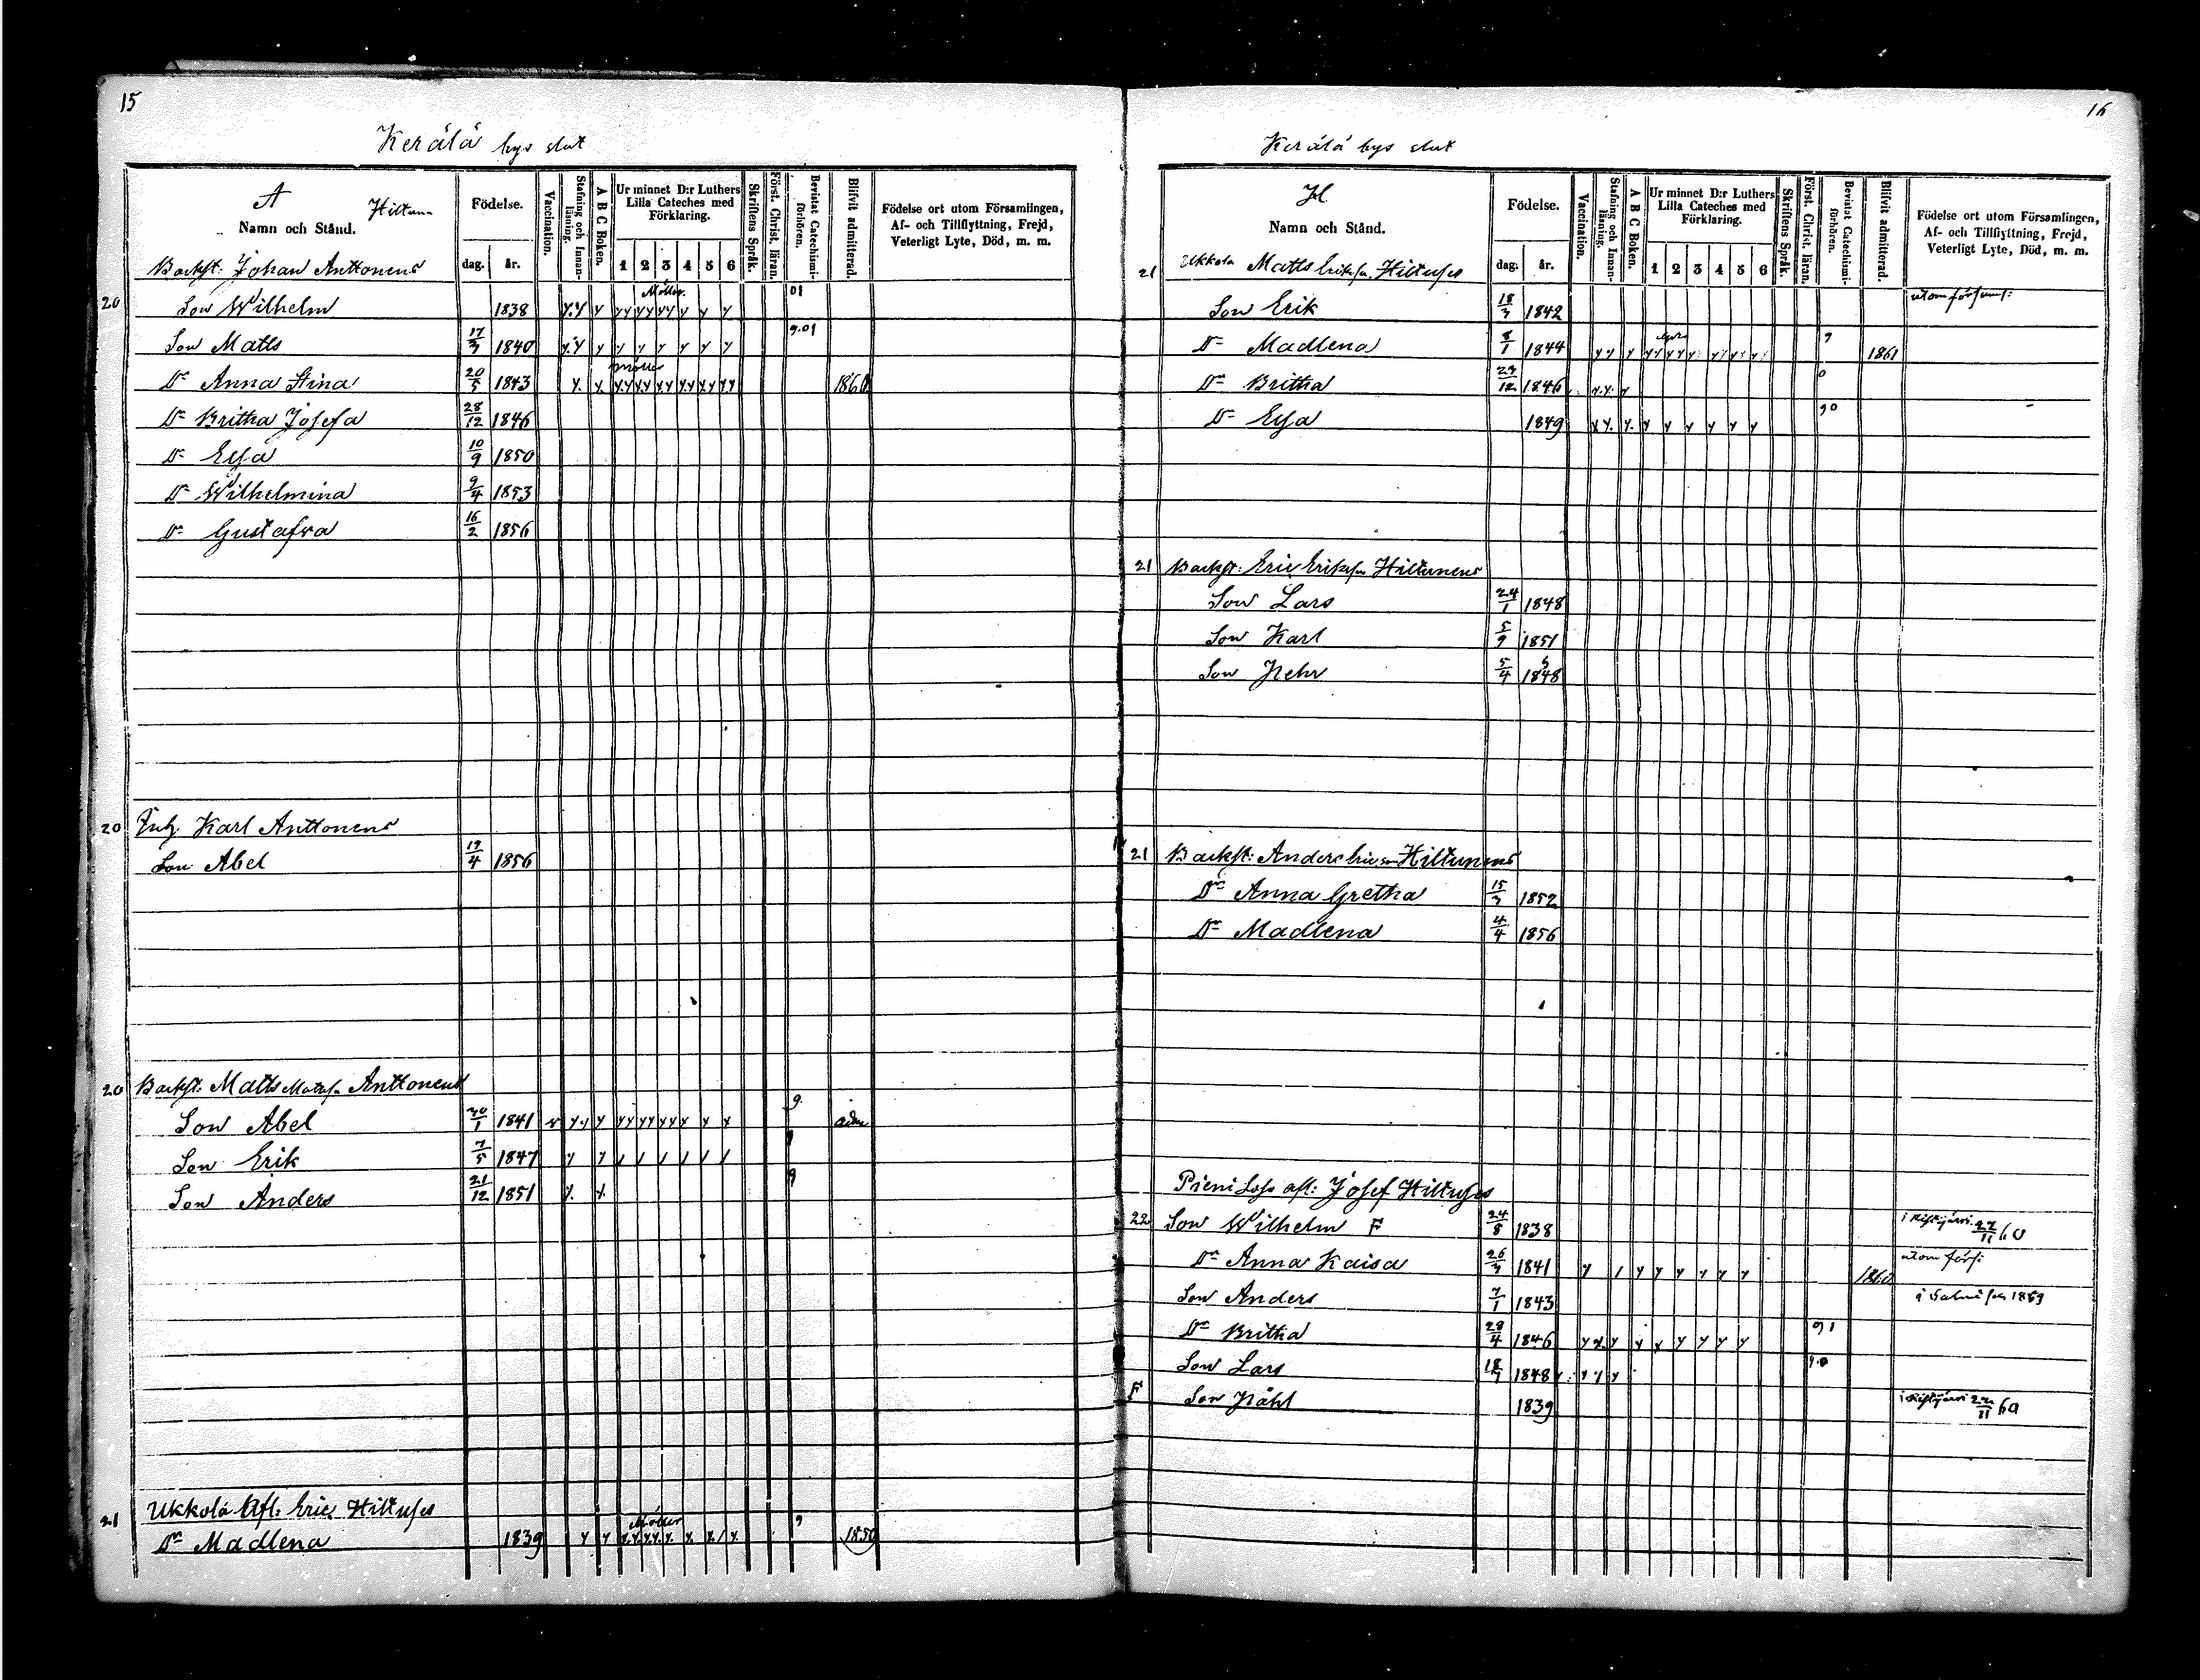 15
Kerälä bys slut
A Hiltun
Namn och Stånd.
Födelse.
dag. år.
Vaccination.
Stafning och Innan-läsning.
A B C Boken.
Ur minnet D:r Luthers Lilla Cateches med Förklaring.
1 2 3 4 5 6
Skriftens Språk.
Först. Christ. läran.
Bevistat Catechismi-förhören.
Blifvit admitterad.
Födelse ort utom Församlingen, Af- och Tillflyttning, Frejd, Veterligt Lyte, Död, m. m.
Backst: Johan Anttonens
20 Son Wilhelm 1838 01
Son Matts 17/3 1840 9.01
Dr Anna Stina 20/5 1843 1860
Dr Britha Josefa 28/12 1846
Dr Elsa 10/9 1850
Dr Wilhelmina 9/4 1853
Dr Gustafva 16/2 1856
20 Inh Karl Anttonens
Son Abel 19/4 1856
20 Backst: Matts Matsn Anttonens
Son Abel 30/1 1841 9 adm
Son Erik 7/5 1847
Son Anders 21/12 1851 9
21 Ukkola Afl: Eric Hiltuses
Dr Madlena 1839 9 1850
16
Kerälä bys slut
H
Namn och Stånd.
Födelse.
dag. år.
Vaccination.
Stafning och Innan-läsning.
A B C Boken.
Ur minnet D:r Luthers Lilla Cateches med Förklaring.
1 2 3 4 5 6
Skriftens Språk.
Först. Christ. läran.
Bevistat Catechismi-förhören.
Blifvit admitterad.
Födelse ort utom Församlingen, Af- och Tillflyttning, Frejd, Veterligt Lyte, Död, m. m.
21 Ukkola Matts Eriksn. Hiltuses
Son Erik 18/3 1842 utom församl:
Dr Madlena 8/1 1844 9 1861
Dr Britha 23/12 1846 0
Dr Elsa 1849 90
21 Backst: Eric Eriksn Hiltunens
Son Lars 24/1 1848
Son Karl 5/9 1851
Son Pehr 5/4 1848
21 Backst: Anders Ericson Hiltunens
Dr Anna Gretha 15/3 1852
Dr Madlena 4/4 1856
Pieni Loso afl: Josef Hiltuses
22 Son Wilhelm F 24/8 1838 22/11 60
Dr Anna Kaisa 26/3 1841 1860 utom förs:
Son Anders 7/1 1843
Dr Britha 28/4 1846 91
Son Lars 18/7 1848
F Son Påhl 1839 22/11 60